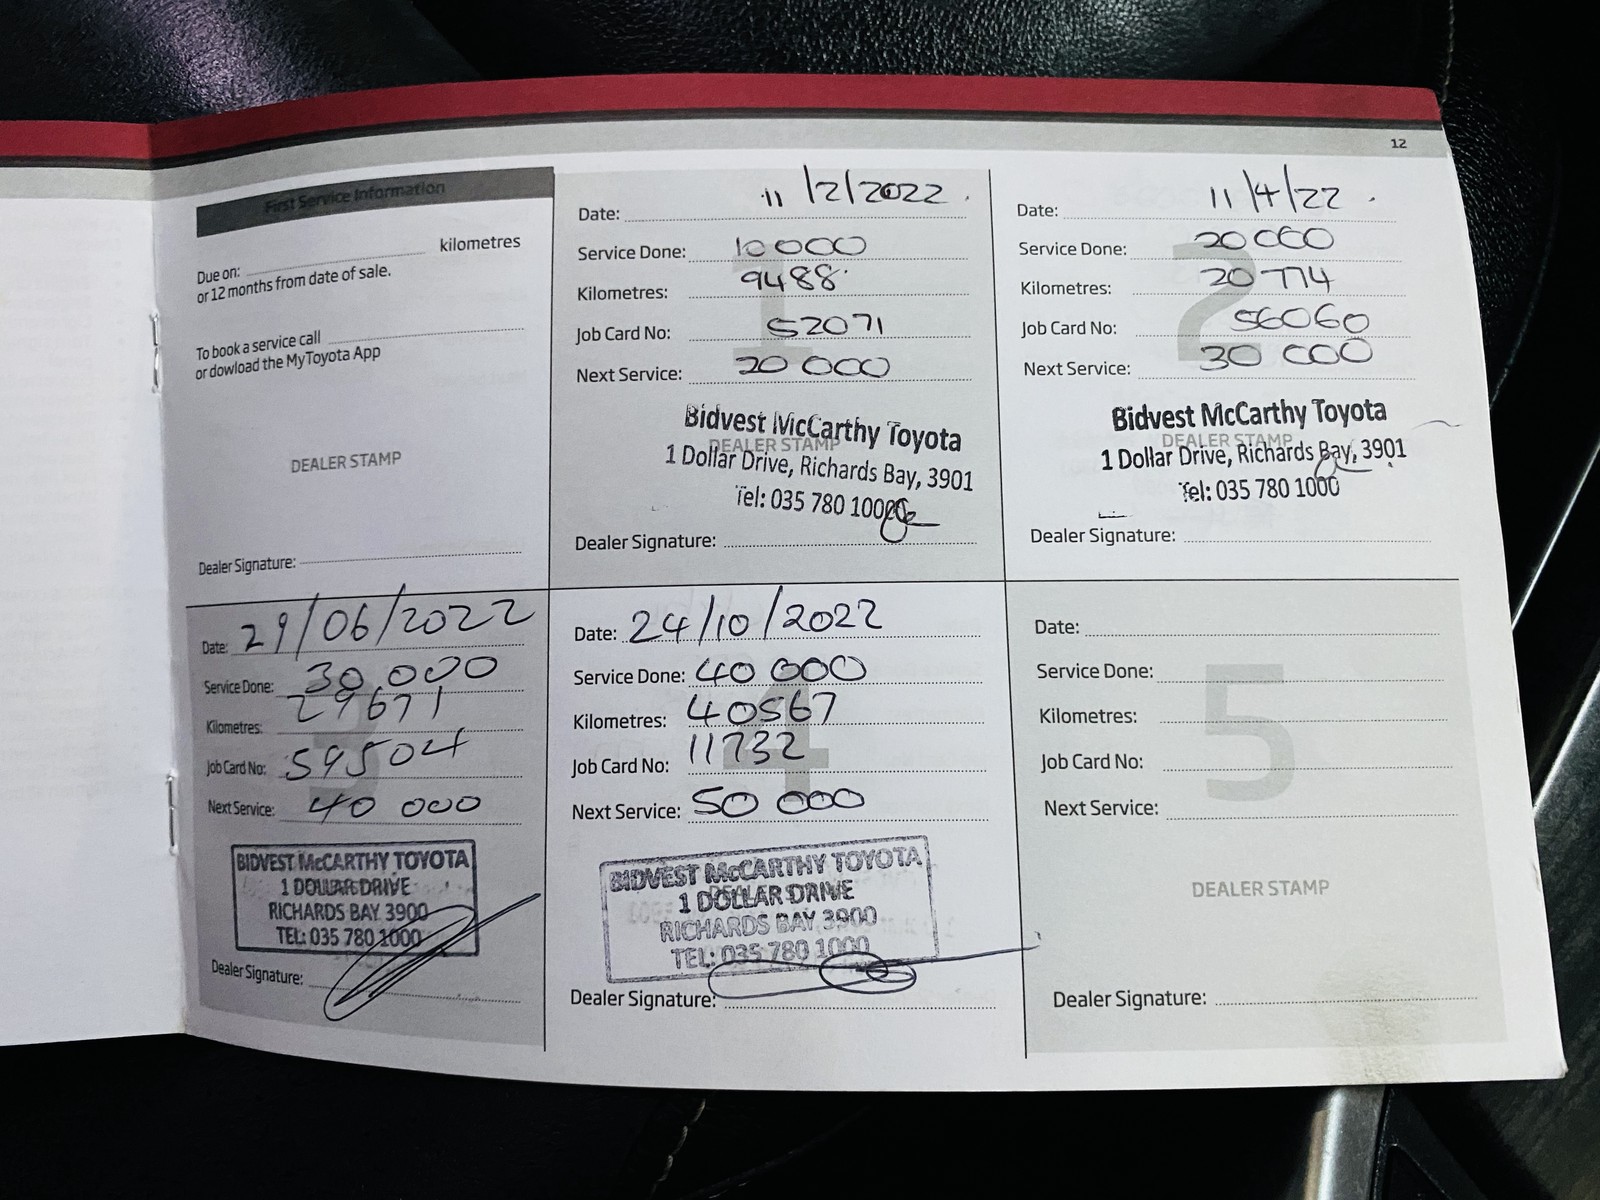 12
First Service Information
Due on: kilometres
or 12 months from date of sale.
To book a service call
or dowload the MyToyota App
DEALER STAMP
Dealer Signature:
Date: 11/2/2022
Service Done: 10 000
Kilometres: 9488
Job Card No: 52071
Next Service: 20 000
1
Bidvest McCarthy Toyota
DEALER STAMP
1 Dollar Drive, Richards Bay, 3901
Tel: 035 780 1000
Dealer Signature:
Date: 11/4/22
Service Done: 20 000
Kilometres: 20 774
Job Card No: 56060
Next Service: 30 000
2
Bidvest McCarthy Toyota
DEALER STAMP
1 Dollar Drive, Richards Bay, 3901
Tel: 035 780 1000
Dealer Signature:
Date: 29/06/2022
Service Done: 30 000
Kilometres: 29671
Job Card No: 59504
Next Service: 40 000
3
BIDVEST McCARTHY TOYOTA
1 DOLLAR DRIVE
RICHARDS BAY 3900
TEL: 035 780 1000
Dealer Signature:
Date: 24/10/2022
Service Done: 40 000
Kilometres: 40567
Job Card No: 11732
Next Service: 50 000
4
BIDVEST McCARTHY TOYOTA
1 DOLLAR DRIVE
RICHARDS BAY 3900
TEL: 035 780 1000
Dealer Signature:
Date:
Service Done:
Kilometres:
Job Card No:
Next Service:
5
DEALER STAMP
Dealer Signature: